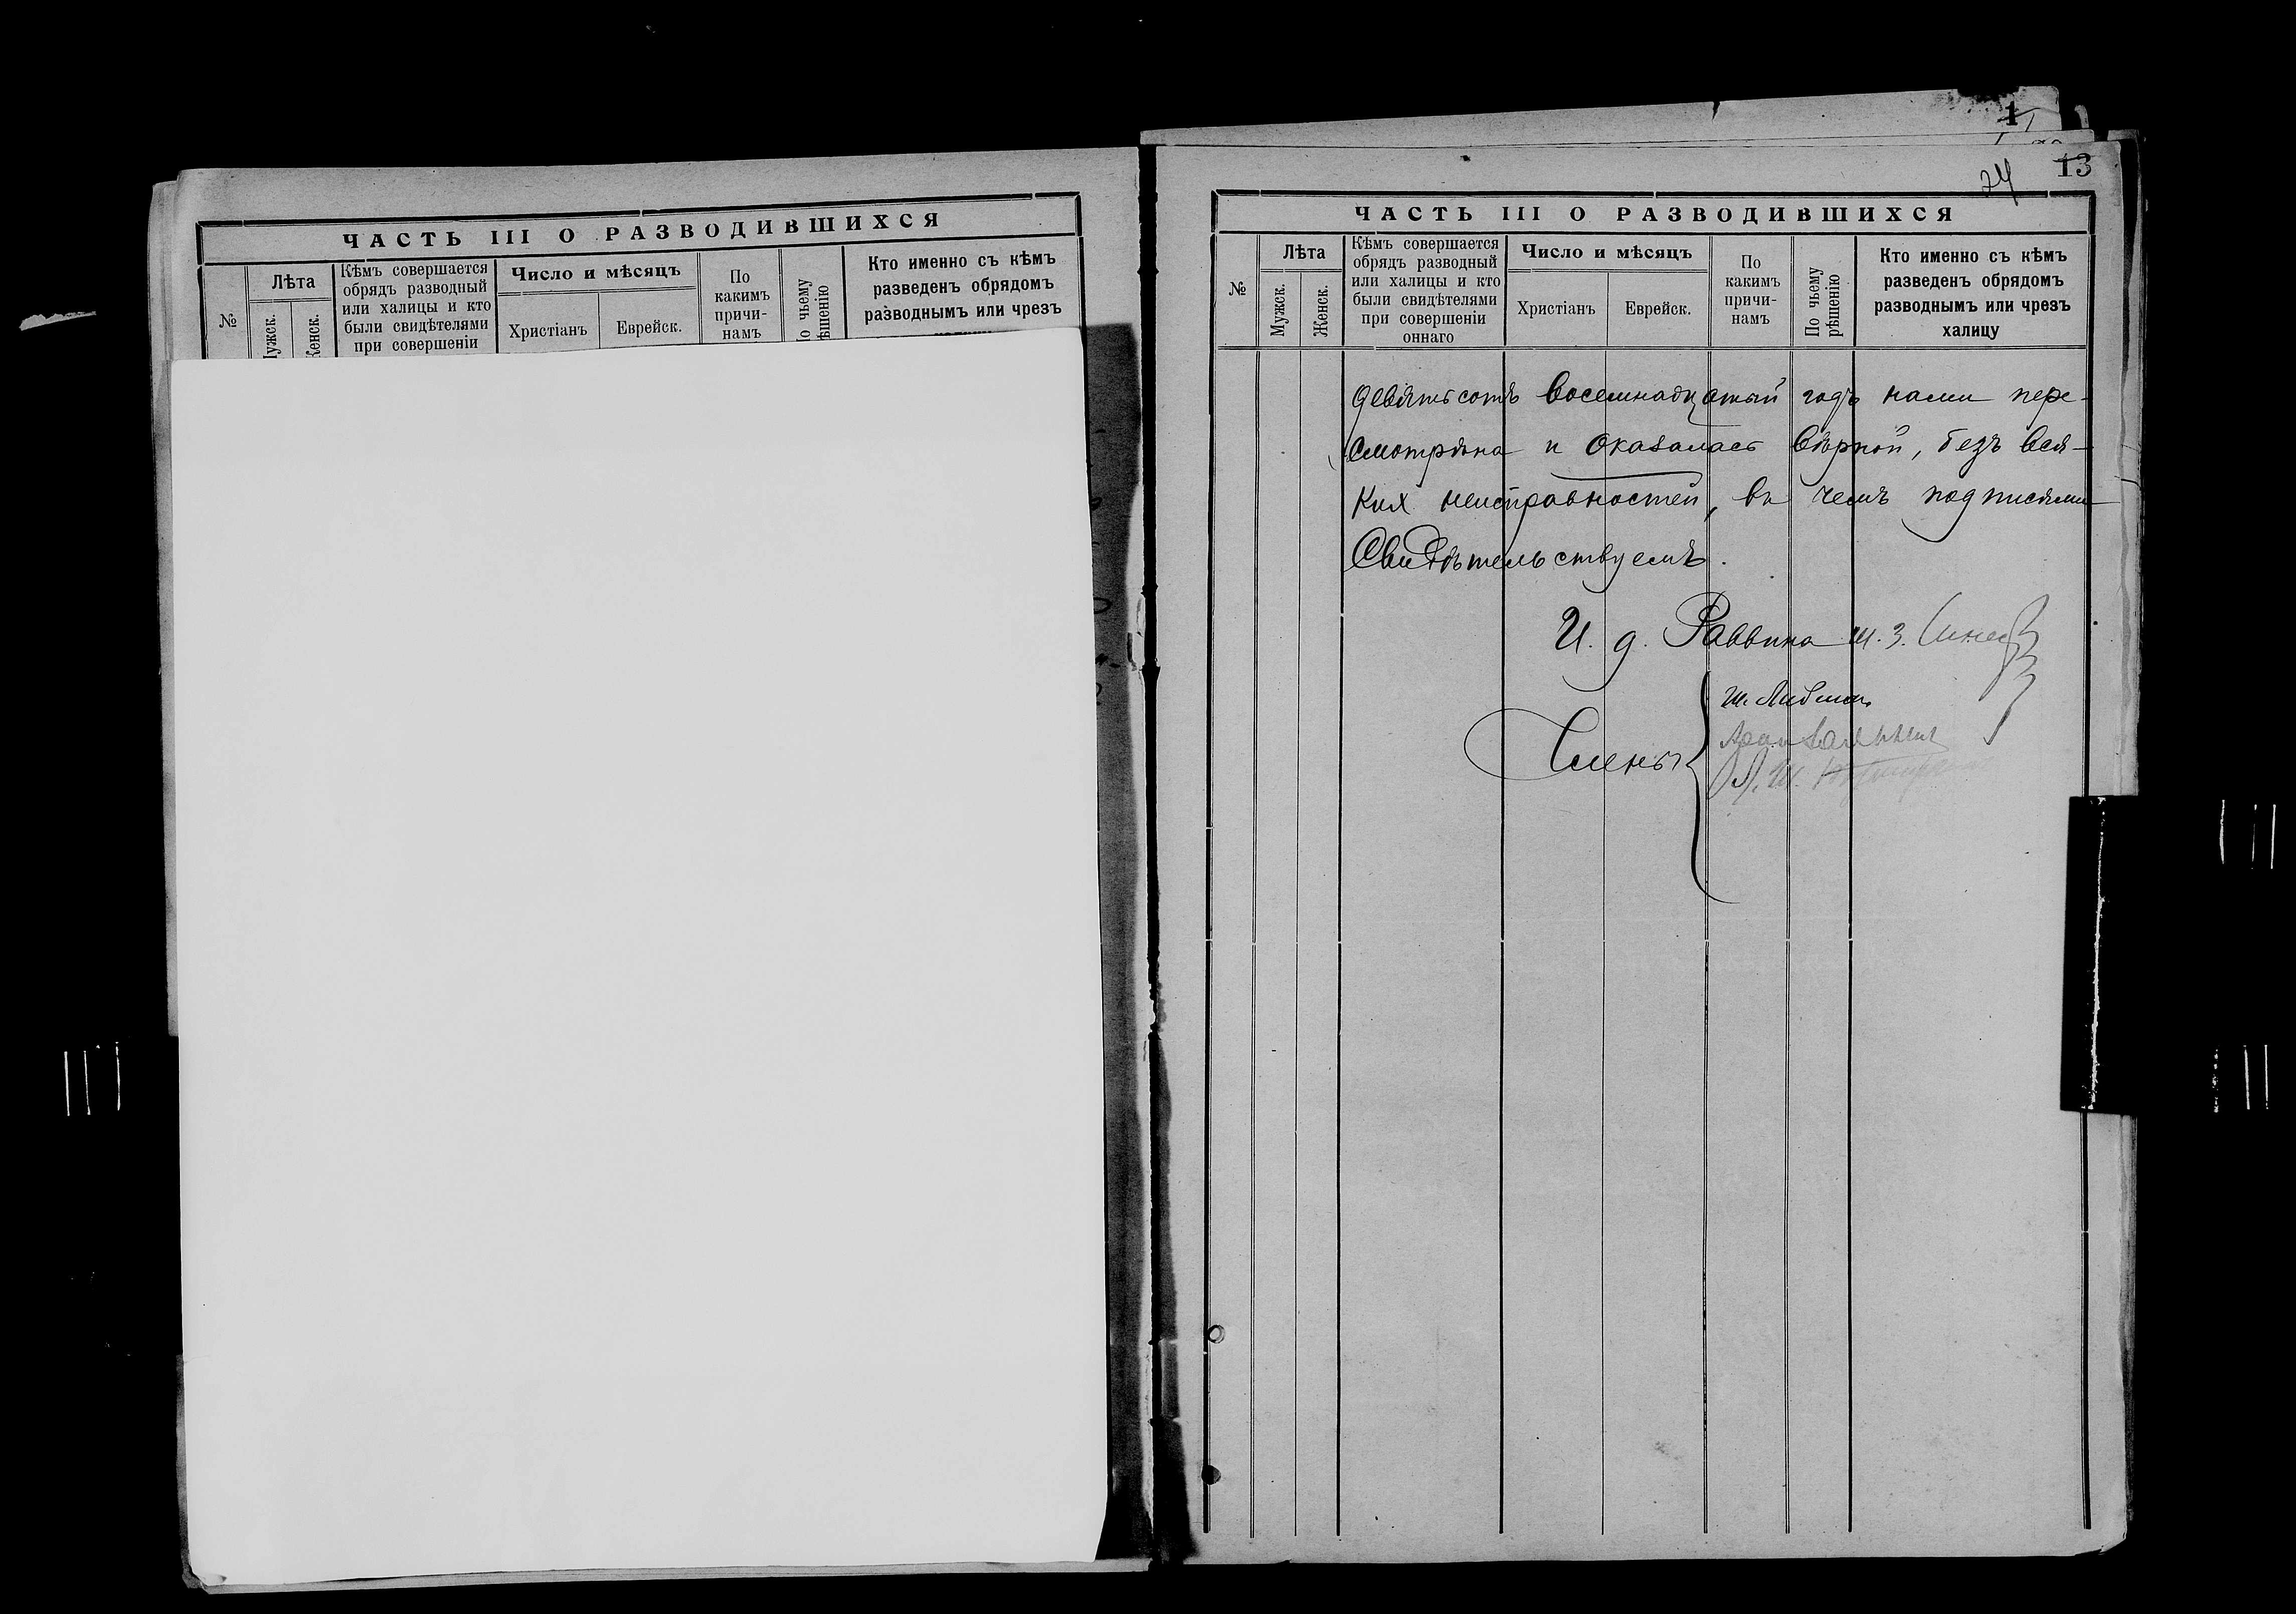 ЧАСТЬ III О РАЗВОДИВШИХСЯ
№
Лѣта
Мужск.
Женск.
Кѣмъ совершается
обрядъ разводный
или халицы и кто
были свидѣтелями
при совершеніи
Число и мѣсяцъ
Христіанъ
Еврейск.
По
какимъ
причи-
намъ
По чьему
рѣшенію
Кто именно съ кѣмъ
разведенъ обрядомъ
разводнымъ или чрезъ
1
24
13
ЧАСТЬ III О РАЗВОДИВШИХСЯ
№
Лѣта
Мужск.
Женск.
Кѣмъ совершается
обрядъ разводный
или халицы и кто
были свидѣтелями
при совершеніи
оннаго
Число и мѣсяцъ
Христіанъ
Еврейск.
По
какимъ
причи-
намъ
По чьему
рѣшенію
Кто именно съ кѣмъ
разведенъ обрядомъ
разводнымъ или чрезъ
халицу
девятьсотъ восемнадцатый годъ нами пере-
смотрѣна и оказалась вѣрной, безъ вся-
ких неисправностей, въ чемъ подписями
Свидѣтельствуемъ.
И. д. Раввина Ш. З.
Члены
Ш.
Л. Ш.